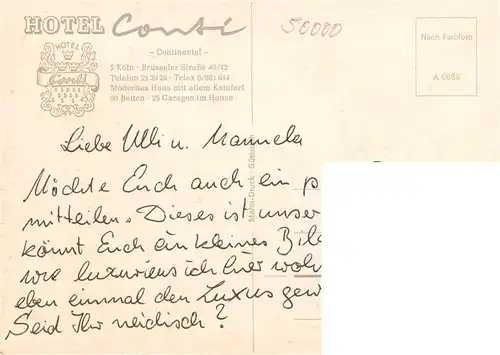 HOTEL Conti
50000
- Continental -
5 Köln · Brüsseler Straße 40/42
Telefon 21 29 26 · Telex 8/881 644
Modernes Haus mit allem Komfort
90 Betten · 25 Garagen im Hause
HOTEL
Conti
Nach Farbfoto
A 6080
Liebe Ulli u. Manuela
Möchte Euch auch ein p
mitteilen. Dieses ist unser
könnt Euch ein kleines Bil
wie luxuriens ich hier woh
eben einmal den Luxus gew
Seid Ihr neidisch?